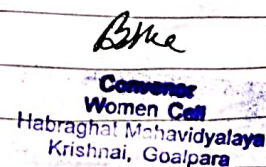 Convener
Women Cell
Habraghat Mahavidyalaya
Krishnai, Goalpara